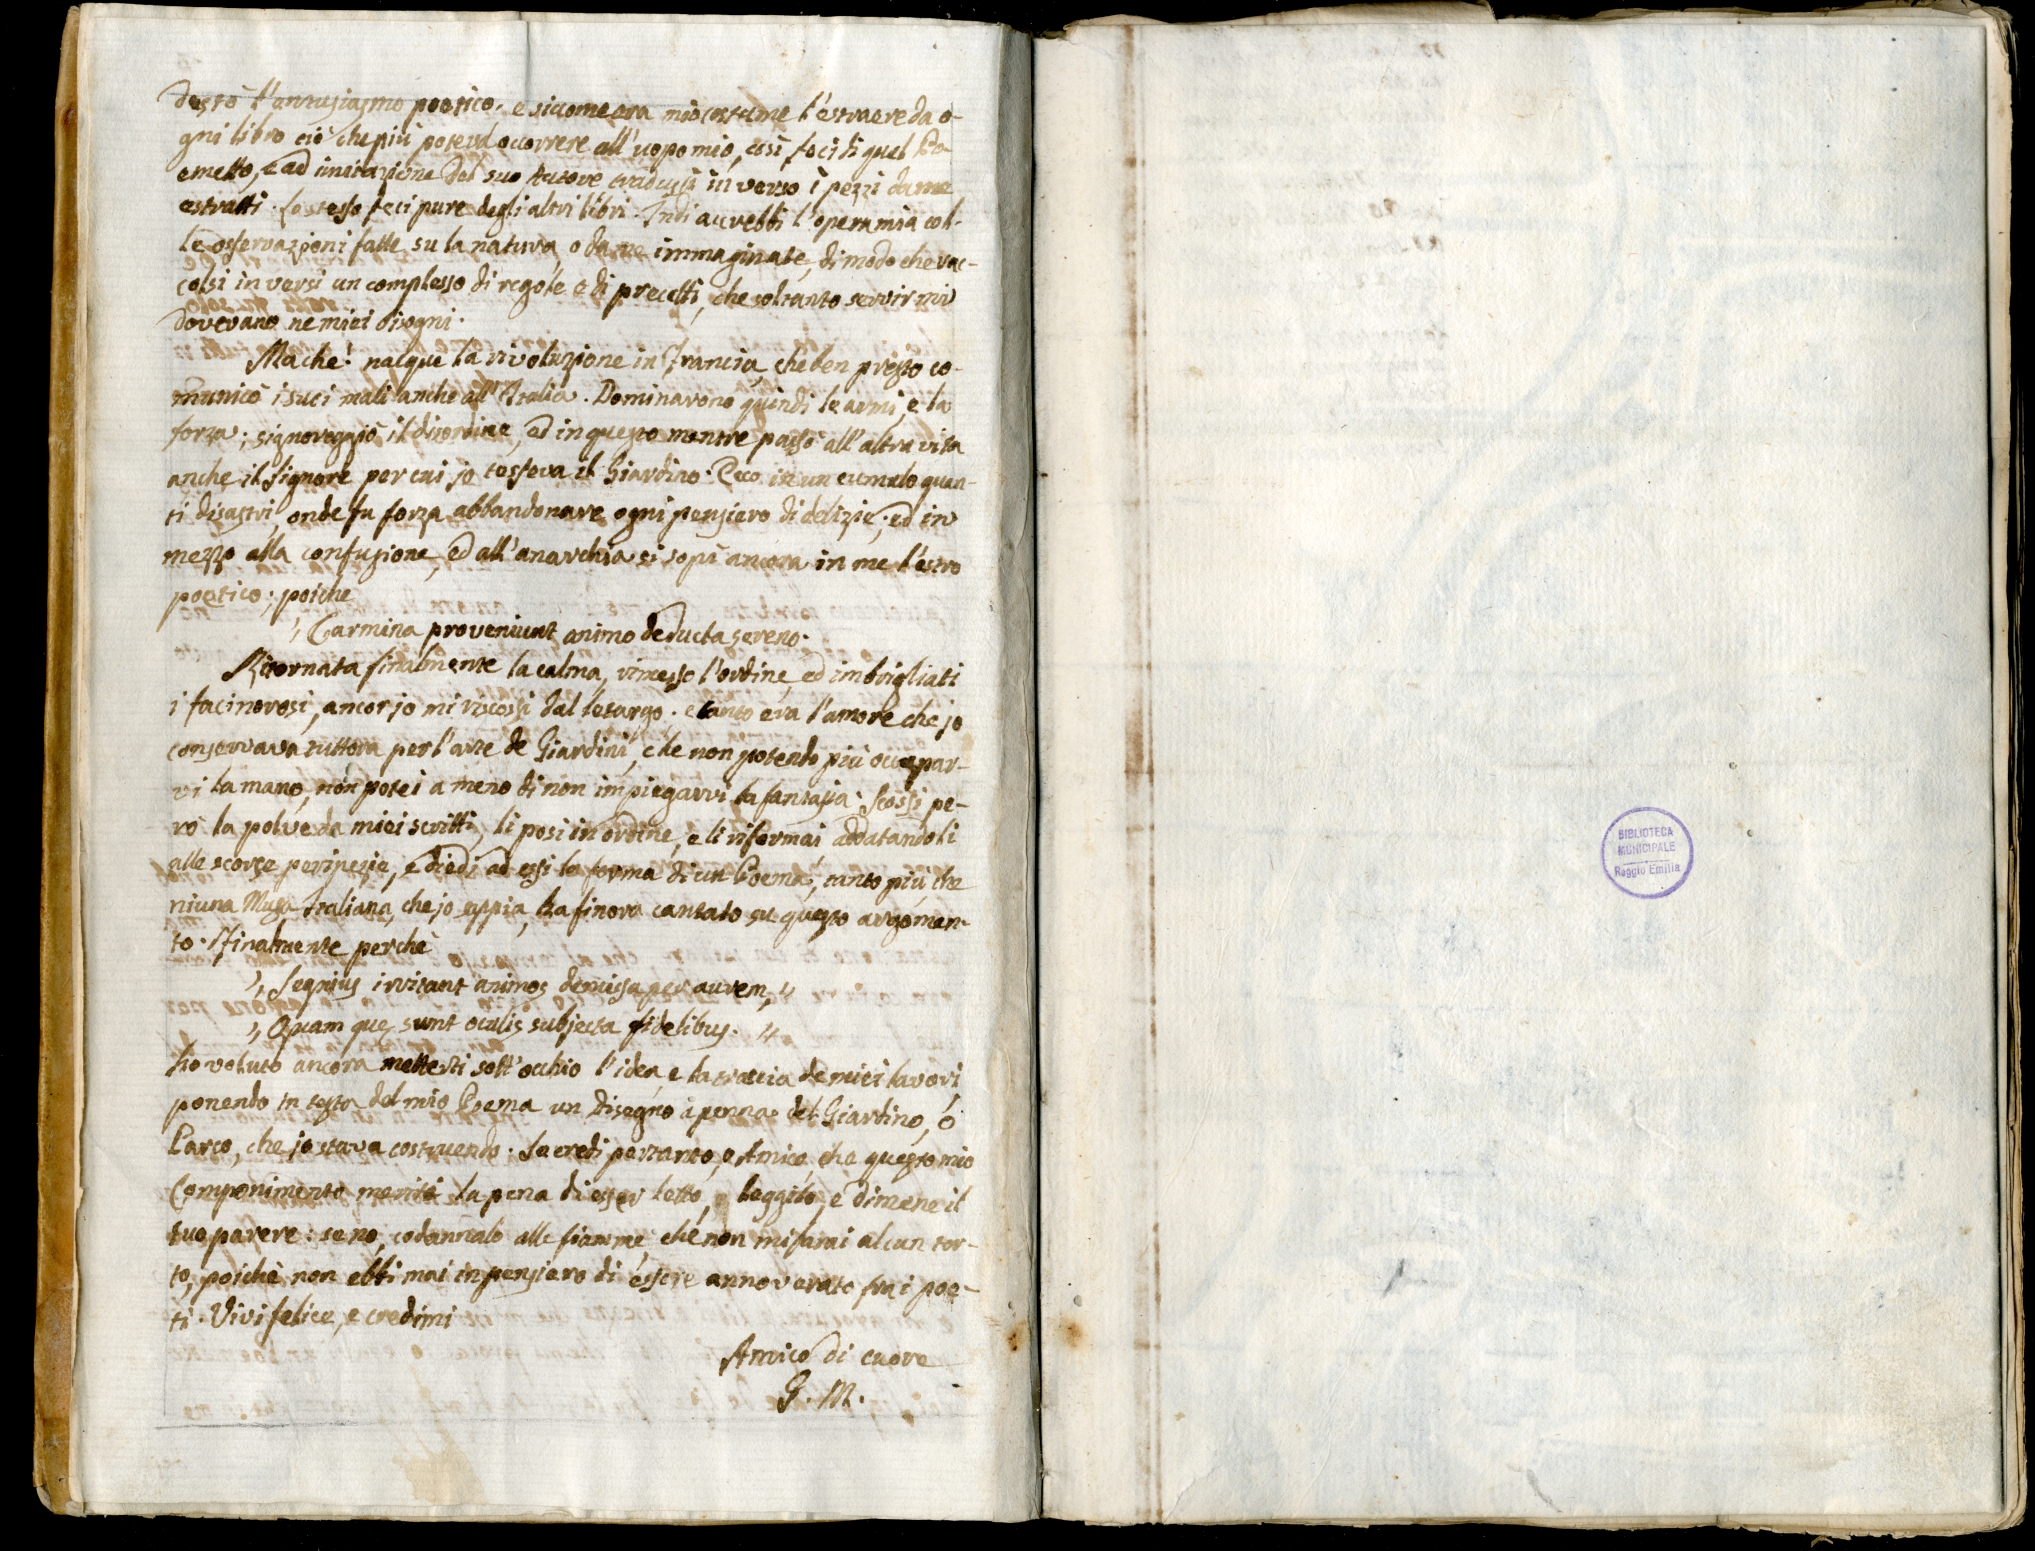 destò l'entusiasmo poetico. e siccome era mio costume l'estraere da o-
gni libro ciò che più poteva occorrere all'uopo mio, così feci di quel Po-
emetto, e ad imitazione del suo Autore tradussi in verso i pezzi da me
estratti. Lo stesso feci pure degli altri libri. Indi accrebbi l'opera mia col-
le osservazioni fatte su la natura o da me immaginate, di modo che rac-
colsi in versi un complesso di regole e di precetti, che soltanto servir mi
dovevano ne miei bisogni.
Ma che! nacque la rivoluzione in Francia, che ben presto co-
municò i suoi mali anche all'Italia. Dominarono quindi le armi, e la
forza; signoreggiò il disordine, ed in questo mentre passò all'altra vita
anche il Signore per cui jo tesseva il Giardino. Ecco in un cumulo quan-
ti disastri, onde fu forza abbandonare ogni pensiero di delizie; ed in
mezzo alla confusione, ed all'anarchia si sopì ancora in me l'estro
poetico; poiche
„ Carmina proveniunt animo deducta sereno.
Ritornata finalmente la calma, rimesso l'ordine, ed imbrigliati
i facinorosi, ancor jo mi riscossi dal letargo. e tanto era l'amore che jo
conservava tuttora per l'arte de Giardini, che non potendo più occupar-
vi la mano, non potei a meno di non impiegarvi la fantasia. Scossi pe-
rò la polve da miei scritti, li posi in ordine, e li riformai addatandoli
alle scorse peripezie, e diedi ad essi la forma di un Poema, tanto più che
niuna Musa Italiana, che jo sappia, ha finora cantato su questo argomen-
to. Finalmente perchè
„ Segnius irritant animos demissa per aurem, „
„ Quam que sunt oculis subjecta fidelibus. „
hò voluto ancora metterti sott'occhio l'idea, e la traccia de miei lavori,
ponendo in testa del mio Poema un disegno a penna del Giardino, ò
Parco, che jo stava costruendo. Se credi pertanto, o Amico, che questo mio
Componimento meriti la pena di esser letto, leggilo, e dimene il
tuo parere: se no, codannalo alle fiamme, che non mi farai alcun tor-
to, poichè non ebbi mai in pensiero di essere annoverato fra i poe-
ti. Vivi felice, e credimi
Amico di cuore
G. M.
BIBLIOTECA
MUNICIPALE
Reggio Emilia